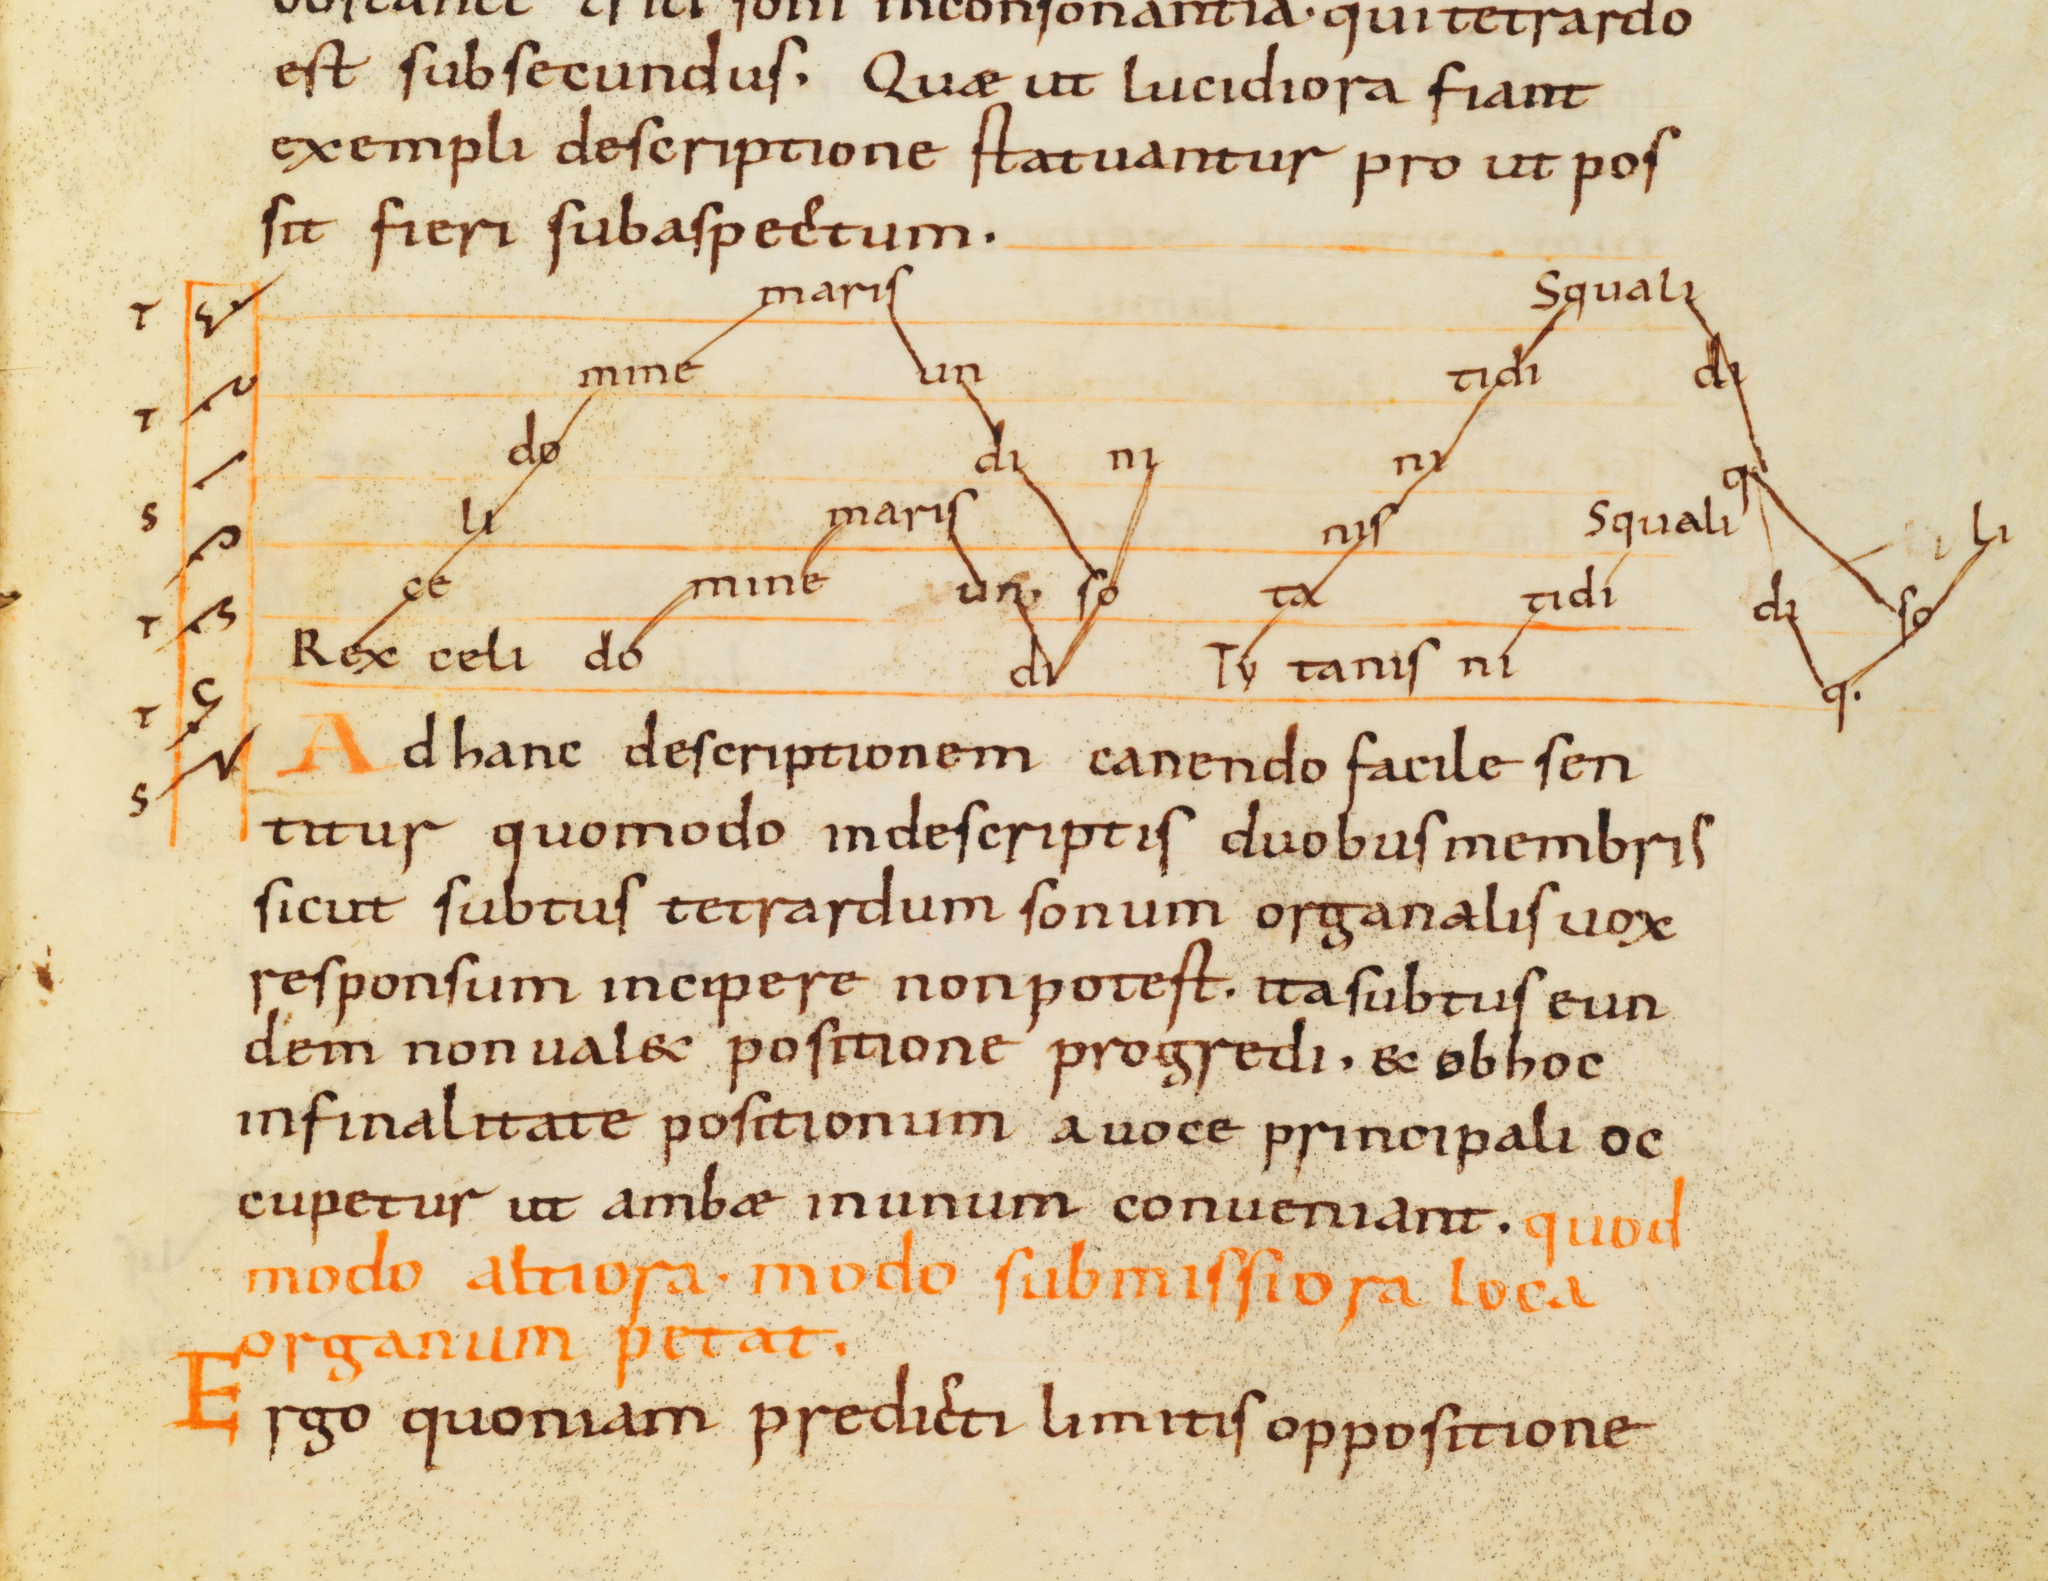 inconsonantia. qui tetrardo
est subsecundus. Quæ ut lucidiora fiant
exempli descriptione statuantur pro ut pos
sit fieri subaspectum.
maris Squali
T
mine un tidi di
T
do di ni ni q
S
li maris nis Squali li
ce mine un. so ta tidi di so
T
Rex celi do di Ty tanis ni q.
T
Ad hanc descriptionem canendo facile sen
S
titur quomodo indescriptis duobus membris
sicut subtus tetrardum sonum organalis uox
responsum incipere non potest. ita subtus eun
dem non ual& positione progredi. & obhoc
infinalitate positionum a uoce principali oc
cupetur ut ambæ inunum conueniant. quod
modo altiora. modo submissiora loca
organum petat.
Ergo quoniam predicti limitis oppositione